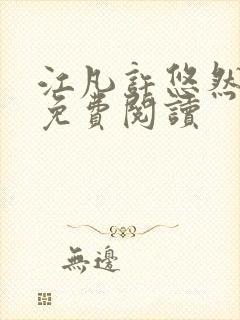 江凡許悠然
免費閱讀
無邊